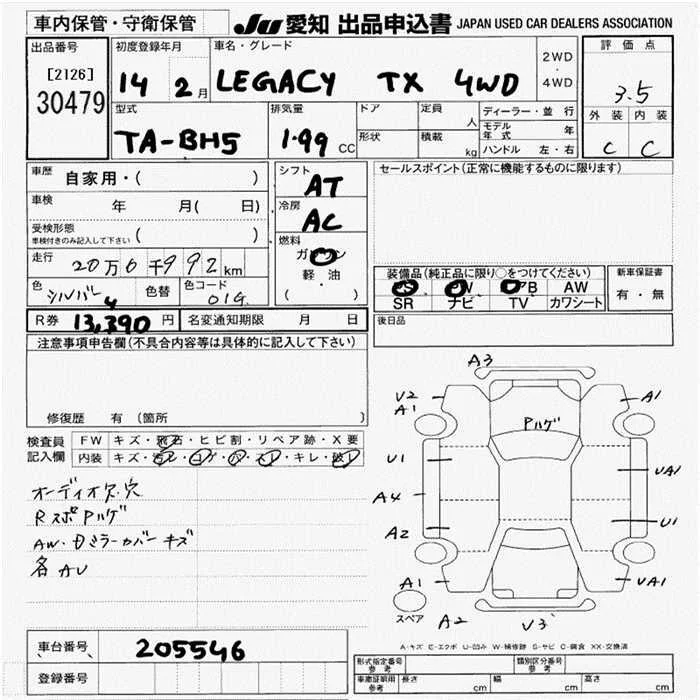 車内保管・守衛保管
JU 愛知 出品申込書 JAPAN USED CAR DEALERS ASSOCIATION
出品番号
[2126]
30479
初度登録年月
14 2月
車名・グレード
LEGACY TX 4WD
2WD
・
4WD
評価点
3.5
外装 内装
C C
型式
TA-BH5
排気量
1.99 CC
ドア
形状
定員 人
積載 kg
ディーラー・並行
モデル年式 年
ハンドル 左・右
車歴 自家用・( )
車検 年 月( 日)
受検形態
車検付きのみ記入して下さい ( )
走行 20万6千992km
色 シルバー 色替 色コード 01G
R券 13,390円 名変通知期限 月 日
シフト
AT
冷房
AC
燃料
ガソリン
軽・油
( )
セールスポイント(正常に機能するものに限ります)
装備品(純正品に限り○をつけてください)
PS PW AB AW
SR ナビ TV カワシート
新車保証書
有・無
後日品
注意事項申告欄(不具合内容等は具体的に記入して下さい)
修復歴 有 (箇所
検査員
記入欄
FW キズ・飛石・ヒビ割・リペア跡・X要
内装 キズ・汚レ・コゲ・穴・スレ・キレ・破レ
オーディオ欠.穴
Rスポ Pハゲ
AW・Dミラーカバー キズ
各AU
A3
U2
A1
A1
Pハゲ
U1
UA1
A4
A2
U1
A1
UA1
スペア
A2
U3
A-キズ E-エクボ U-凹み W-補修跡 S-サビ C-腐食 XX-交換済
車台番号 205546
登録番号
形式指定番号
参考
類別区分番号
参考
車庫証明用
参考
長さ cm 幅 cm 高さ cm